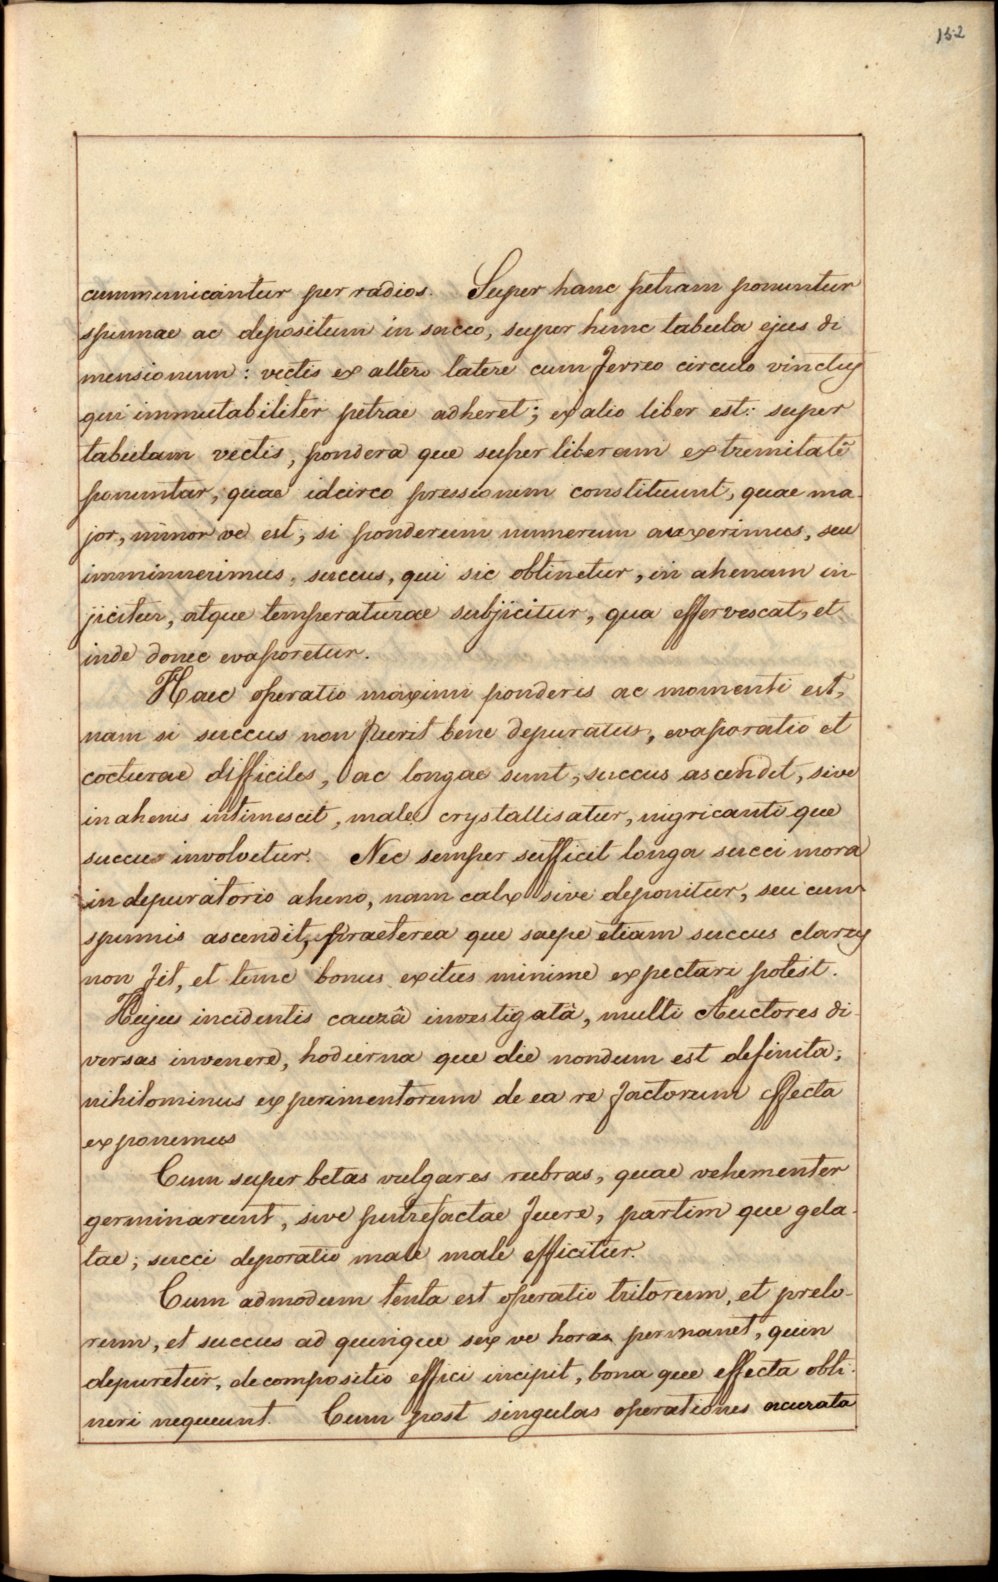 152
cummunicantur per radios. Super hanc petram ponuntur
spumae ac depositum in sacco, super hunc tabula ejus di
mensionum: vectis ex altero latere cum ferreo circulo vinctus
qui immutabiliter petrae adheret; ex alio liber est: super
tabulam vectis, pondera que super liberam extremitatē
ponuntur, quae idcirco pressionem constituunt, quae ma-
jor, minor ve est, si ponderum numerum auxerimus, seu
imminuerimus, succus, qui sic obtinetur, in ahenam in-
jicitur, atque temperaturae subjicitur, qua effervescat, et
inde donec evaporetur.
Haec operatio maximi ponderis ac momenti est,
nam si succus non fuerit bene depuratus, evaporatio et
cocturae difficiles, ac longae sunt, succus ascendit, sive
in ahenis intimescit, male crystallisatur, nigricanti que
succus involvetur. Nec semper sufficit longa succi mora
in depuratorio aheno, nam calx sive deponitur, seu cum
spumis ascendit, praeterea que saepe etiam succus clarus
non fit, et tunc bonus exitus minime expectari potest.
Hujus incidentis cauzâ investigatâ, multi Auctores di-
versas invenere, hodierna que die nondum est definita;
nihilominus experimentorum de ea re factorum effecta
exponemus
Cum super betas vulgares rubras, quae vehementer
germinarunt, sive putrefactae fuere, partim que gela-
tae; succi deporatio male male efficitur.
Cum admodum lenta est operatio tritorum, et prelo-
rum, et succus ad quinque sex ve horas permanet, quin
depuretur, decompositio effici incipit, bona que effecta obti-
neri nequeunt. Cum post singulas operationes acurata